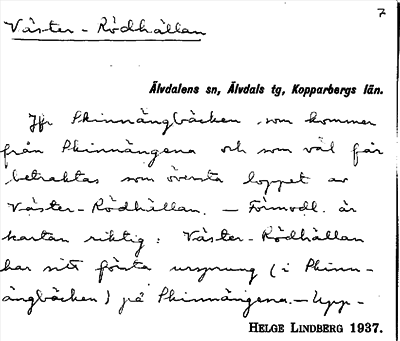 7
Väster-Rödhällan
Älvdalens sn, Älvdals tg, Kopparbergs län.
Jfr Skinnängbäcken, som kommer
från Skinnängena och som väl får
betraktas som översta loppet av
Väster-Rödhällan. — Förmodl. är
kartan riktig: Väster-Rödhällan
har sitt första ursprung (i Skinn-
ängbäcken) på Skinnängena. — Upp-
HELGE LINDBERG 1937.